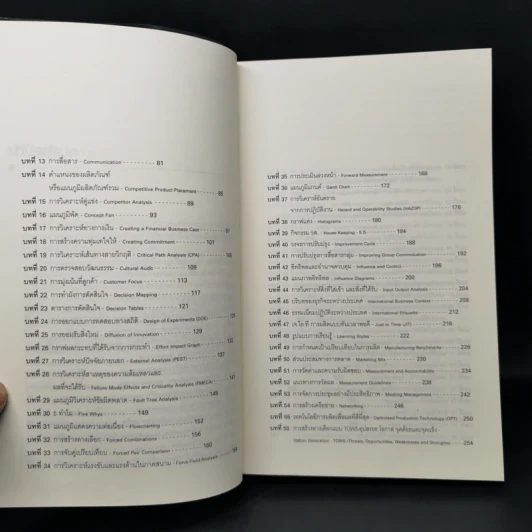 บทที่ 13 การสื่อสาร - Communication - - - - - - - - - - 81
บทที่ 14 ตำแหน่งของผลิตภัณฑ์
หรือแผนภูมิผลิตภัณฑ์รวม - Competitive Product Placement - - 85
บทที่ 15 การวิเคราะห์คู่แข่ง - Competitor Analysis - - - - - - - 89
บทที่ 16 แผนภูมิพัด - Concept Fan - - - - - - - 93
บทที่ 17 การวิเคราะห์ทางการเงิน - Creating a Financial Business Case - - 97
บทที่ 18 การสร้างความทุ่มเทใจให้ - Creating Commitment - - - - 101
บทที่ 19 การวิเคราะห์เส้นทางสายวิกฤติ - Critical Path Analysis (CPA) - - 107
บทที่ 20 การตรวจสอบวัฒนธรรม - Cultural Audit - - - - 109
บทที่ 21 การมุ่งเน้นที่ลูกค้า - Customer Focus - - - - 113
บทที่ 22 การทำผังการตัดสินใจ - Decision Mapping - - - - 117
บทที่ 23 ตารางการตัดสินใจ - Decision Tables - - - - 121
บทที่ 24 การออกแบบการทดสอบทางสถิติ - Design of Experiments (DOE)
บทที่ 25 การยอมรับสิ่งใหม่ - Diffusion of Innovation - - - - 129
บทที่ 26 กราฟผลกระทบที่ได้รับจากการกระทำ - Effort Impact Graph
บทที่ 27 การวิเคราะห์ปัจจัยภายนอก - External Analysis (PEST)
บทที่ 28 การวิเคราะห์สาเหตุของความล้มเหลวและ
ผลที่จะได้รับ - Failure Mode Effects and Criticality Analysis (FMECA)
บทที่ 29 แผนภูมิวิเคราะห์ข้อผิดพลาด - Fault Tree Analysis
บทที่ 30 5 ทำไม - Five Whys - - - - 149
บทที่ 31 แผนภูมิแสดงความต่อเนื่อง - Flowcharting - - - - 152
บทที่ 32 การสร้างทางเลือก - Forced Combinations - - - - 156
บทที่ 33 การจับคู่เปรียบเทียบ - Forced Pair Comparison - - - - 160
บทที่ 34 การวิเคราะห์แรงขับและแรงต้านในภาคสนาม - Force Field Analysis
บทที่ 35 การประเมินล่วงหน้า - Forward Measurement - - - 168
บทที่ 36 แผนภูมิแกนต์ - Gantt Chart - - - - 172
บทที่ 37 การวิเคราะห์อันตราย
จากการปฏิบัติงาน - Hazard and Operability Studies (HAZOP) - - 176
บทที่ 38 กราฟแท่ง - Histograms - - - - 180
บทที่ 39 กิจกรรม 5ส. - House Keeping - 5 S - - - -
บทที่ 40 วงจรการปรับปรุง - Improvement Cycle - - - - 188
บทที่ 41 การปรับปรุงการสื่อสารกลุ่ม - Improving Group Communication - - 192
บทที่ 42 อิทธิพลและอำนาจควบคุม - Influence and Control - - - - 196
บทที่ 43 แผนภาพอิทธิพล - Influence Diagrams - - - - 200
บทที่ 44 การวิเคราะห์สิ่งที่ใส่เข้า และสิ่งที่ได้รับ - Input Output Analysis - - 204
บทที่ 45 บริบทของธุรกิจระหว่างประเทศ - International Business Context - -
บทที่ 46 ธรรมเนียมปฏิบัติระหว่างประเทศ - International Etiquette - - - - 212
บทที่ 47 เจ.ไอ.ที การผลิตแบบทันเวลาพอดี - Just in Time (JIT) - - - -
บทที่ 48 รูปแบบการเรียนรู้ - Learning Styles - - - - 222
บทที่ 49 การกำหนดเป้าเปรียบเทียบในการผลิต - Manufacturing Benchmarks - - 226
บทที่ 50 ส่วนประสมทางการตลาด - Marketing Mix - - - -
บทที่ 51 การวัดค่าและความรับผิดชอบ - Measurement and Accountability - - 234
บทที่ 52 แนวทางการวัดผล - Measurement Guidelines - - - - 238
บทที่ 53 การจัดการประชุมอย่างมีประสิทธิภาพ - Meeting Management - - 242
บทที่ 54 การสร้างเครือข่าย - Networking - - - - 246
บทที่ 55 เทคโนโลยีการผลิตเพื่อผลที่ดีที่สุด - Optimised Production Technology (OPT)
บทที่ 56 การสร้างทางเลือกแบบ TOWS-อุปสรรค โอกาส จุดด้อยและจุดแข็ง
Option Generation - TOWS (Threats, Opportunities, Weaknesses and Strengths) - - 254